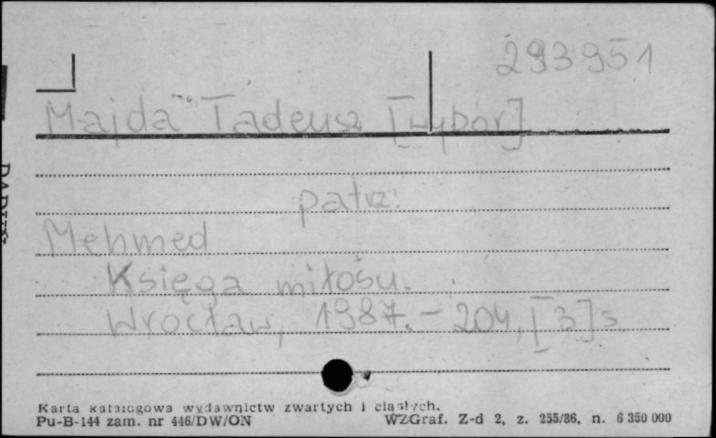 293951
Majda Tadeusz [wybór]
patrz:
Mehmed
Księga miłości.
Wrocław, 1987. – 204, [3] s.
Karta katalogowa wydawnictw zwartych i ciągłych.
Pu-B-144 zam. nr 446/DW/ON
WZGraf. Z-d 2, z. 255/86, n. 6 350 000